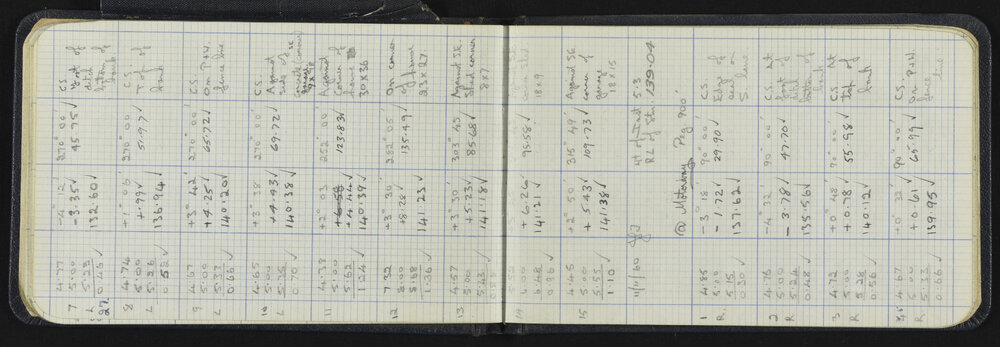 7 4.77 -4° 12' 270° 00' C.S.
L 5.00 -3.35✓ 45.75✓ Bot of
27. 5.23 132.60✓ ditch
0.46✓ bottom of
bank
8 4.74 +1° 06' 270° 00' C.S.
L 5.00 +.99✓ 51.97✓ T of of
5.26 136.94✓ bank
0.52✓
9 4.67 +3° 42' 270° 00' C.S.
L 5.00 +4.25✓ 65.72✓ On P+W.
5.33 140.20✓ fence line
0.66✓
10 4.65 +3° 38' 270° 00' C.S.
L 5.00 +4.43✓ 69.72✓ Against
5.35 140.38✓ side of SE
0.70✓
11 4.38 +2° 03' 282° 00' Against
5.00 +4.44✓ 123.83✓ Corner of
5.62 140.39✓ shed
1.24✓ 30 x 36
12 7.32 +3° 30' 282° 05' On corner
8.00 +8.28✓ 135.49✓ of
8.68 141.23✓ 23 x 27
1.36✓
13 4.57 +3° 30' 303° 45 Against S.E.
5.00 +5.23✓ 85.68✓ shed corner
5.43 141.18✓ 8 x 7
14 5.00 +6.26✓ 95.58✓
0.48 141.21✓ 18 x 9
0.96✓
15 4.45 +2° 50' 315° 49' Against SE
5.00 +5.43✓ 109.73✓ corner of
5.55 141.38✓ garage
1.10✓ 18 x 15
11/11/60 Ht of Inst 5.3
RL of Stn. 139.04
@ Peg 900'
1 4.85 -3° 18 90° 00' C.S.
R. 5.00 -1.72✓ 29.90✓ Edge of
5.15 137.62✓ on
0.30✓ S lane
2 4.76 -4 32' 90° 00' C.S. At
R 5.00 -3.78✓ 47.70✓ foot of
5.24 135.56✓ ditch
0.48✓ bottom of
bank
3 4.72 +0° 48' 90° 00' C.S. At
R 5.00 +0.78✓ 55.98✓ top of
5.28 140.12✓ bank
0.56✓
4 4.67 +0° 32' 90° 00' C.S.
R 5.00 +0.61✓ 65.99✓ On P+W
5.33 139.95✓ fence
0.66✓ line